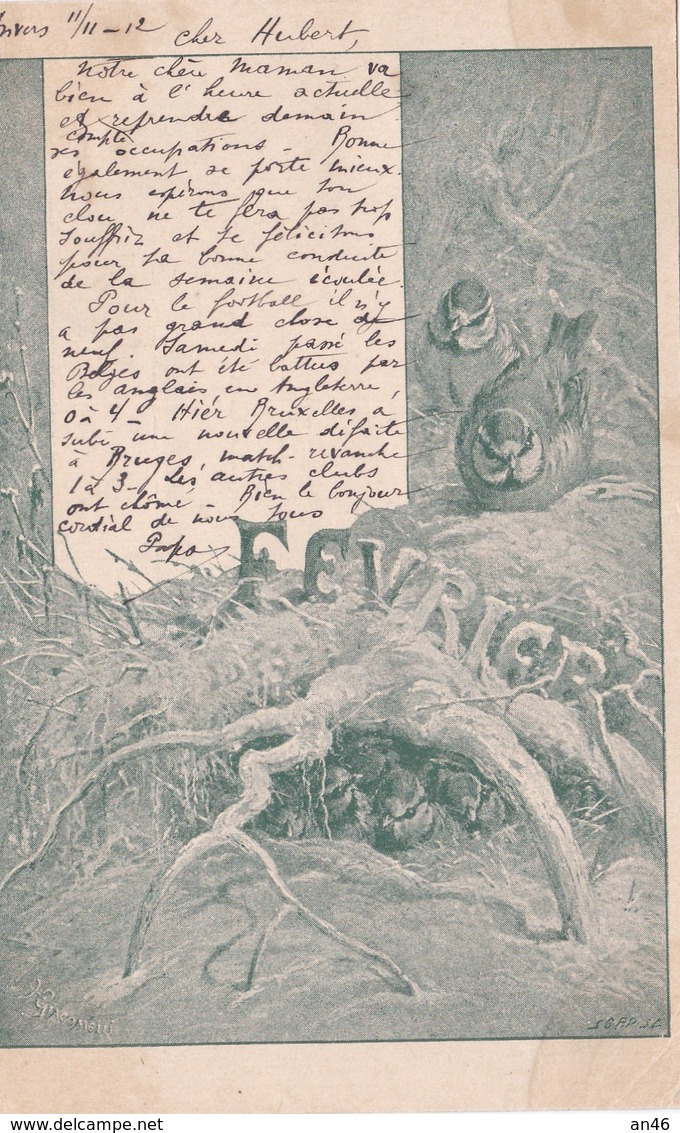 Anvers 11/11-12
cher Hubert,
Notre chère Maman va
bien à l'heure actuelle
et reprendre demain
compte
ses occupations - Bonne
également se porte mieux.
Nous espérons que ton
clou ne te fera pas trop
souffrir et te félicitons
pour ta bonne conduite
de la semaine écoulée.
Pour le football il n'y
a pas grand chose de
neuf. Samedi passé les
Belges ont été battus par
les anglais en Angleterre,
0 à 4 - Hier Bruxelles a
subi une nouvelle défaite
à Bruges, match-revanche
1 à 3 - Les autres clubs
ont chômé - Bien le bonjour
cordial de nous tous
Papa
FEVRIER
Giacomelli
SGAP SC
www.delcampe.net
an46